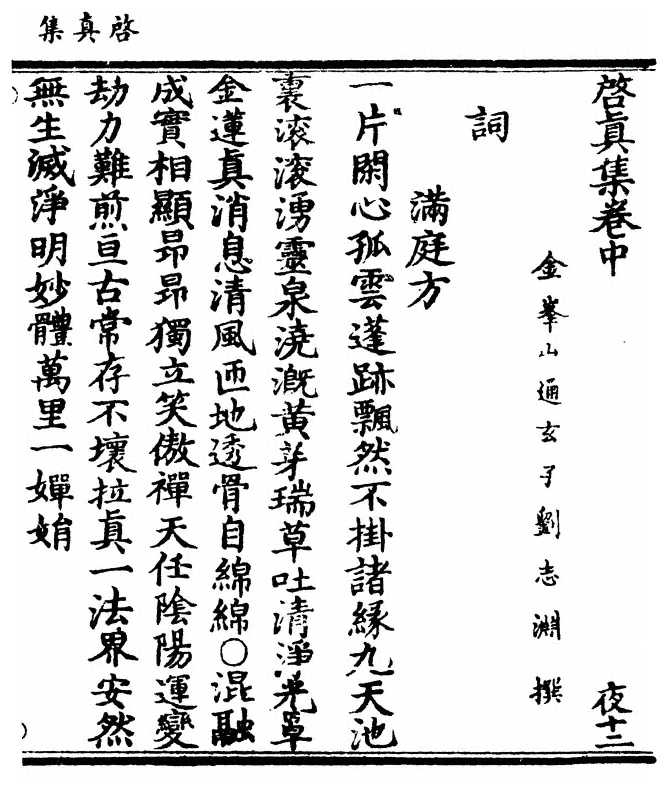 啓真集
啓眞集卷中 夜十二
金峯山通玄子劉志淵撰
詞
滿庭方
一片閑心孤雲蓬跡飄然不掛諸緣九天池
裏滚滚湧靈泉澆溉黄芽瑞草吐清淨光罩
金蓮眞消息清風匝地透骨自綿綿○混融
成實相顯昂昂獨立笑傲禪天任陰陽運變
劫力難煎亘古常存不壞拉眞一法界安然
無生滅淨明妙體萬里一嬋娟